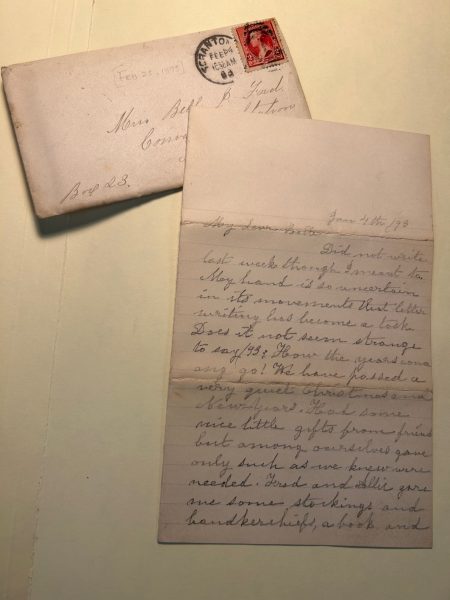 SCRANTON
FEB 4
1030AM
93
Miss Belle B Ford
Station
Box 23.
Jan 4th/93
My dear Belle
Did not write
last week though I meant to.
My hand is so uncertain
in its movements that letter
writing has become a task.
Does it not seem strange
to say /93? How the years come
and go! We have passed a
very quiet Christmas and
New Year. Had some
nice little gifts from friends
but among ourselves gave
only such as we knew were
needed. Fred and Allie gave
me some stockings and
handkerchiefs, a book and